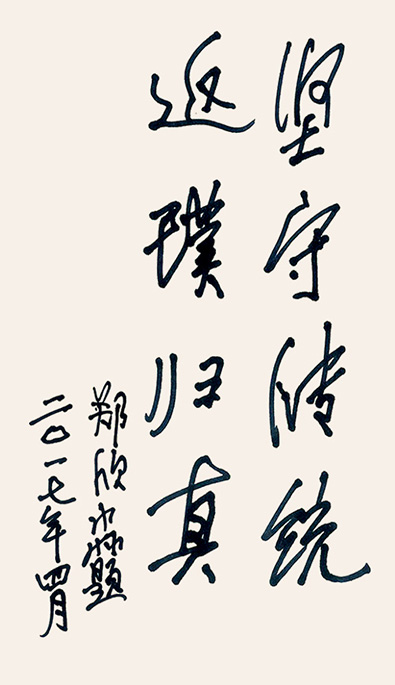 坚守传统
返璞归真
郑欣淼题
二〇一七年四月